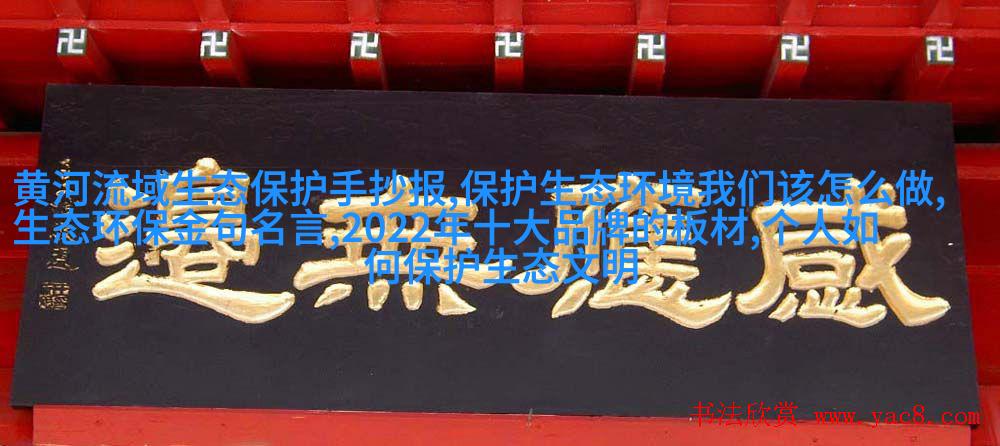 黄河流域生态保护手抄报,保护生态环境我们该怎么做,
生态环保金句名言,2022年十大品牌的板材,个人如
何保护生态文明
感應無邊
书法欣赏 www.yac8.com